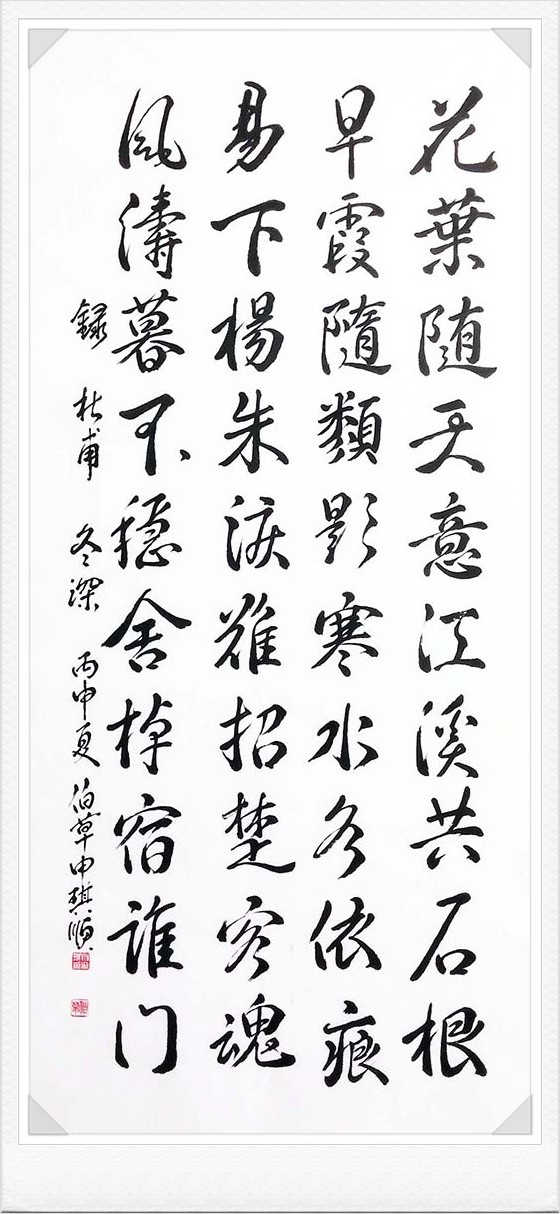 花葉随天意江溪共石根
早霞隨類影寒水各依痕
易下楊朱淚難招楚客魂
風濤暮不穩舍棹宿誰门
録 杜甫 冬深 丙申夏 伯草申琪順